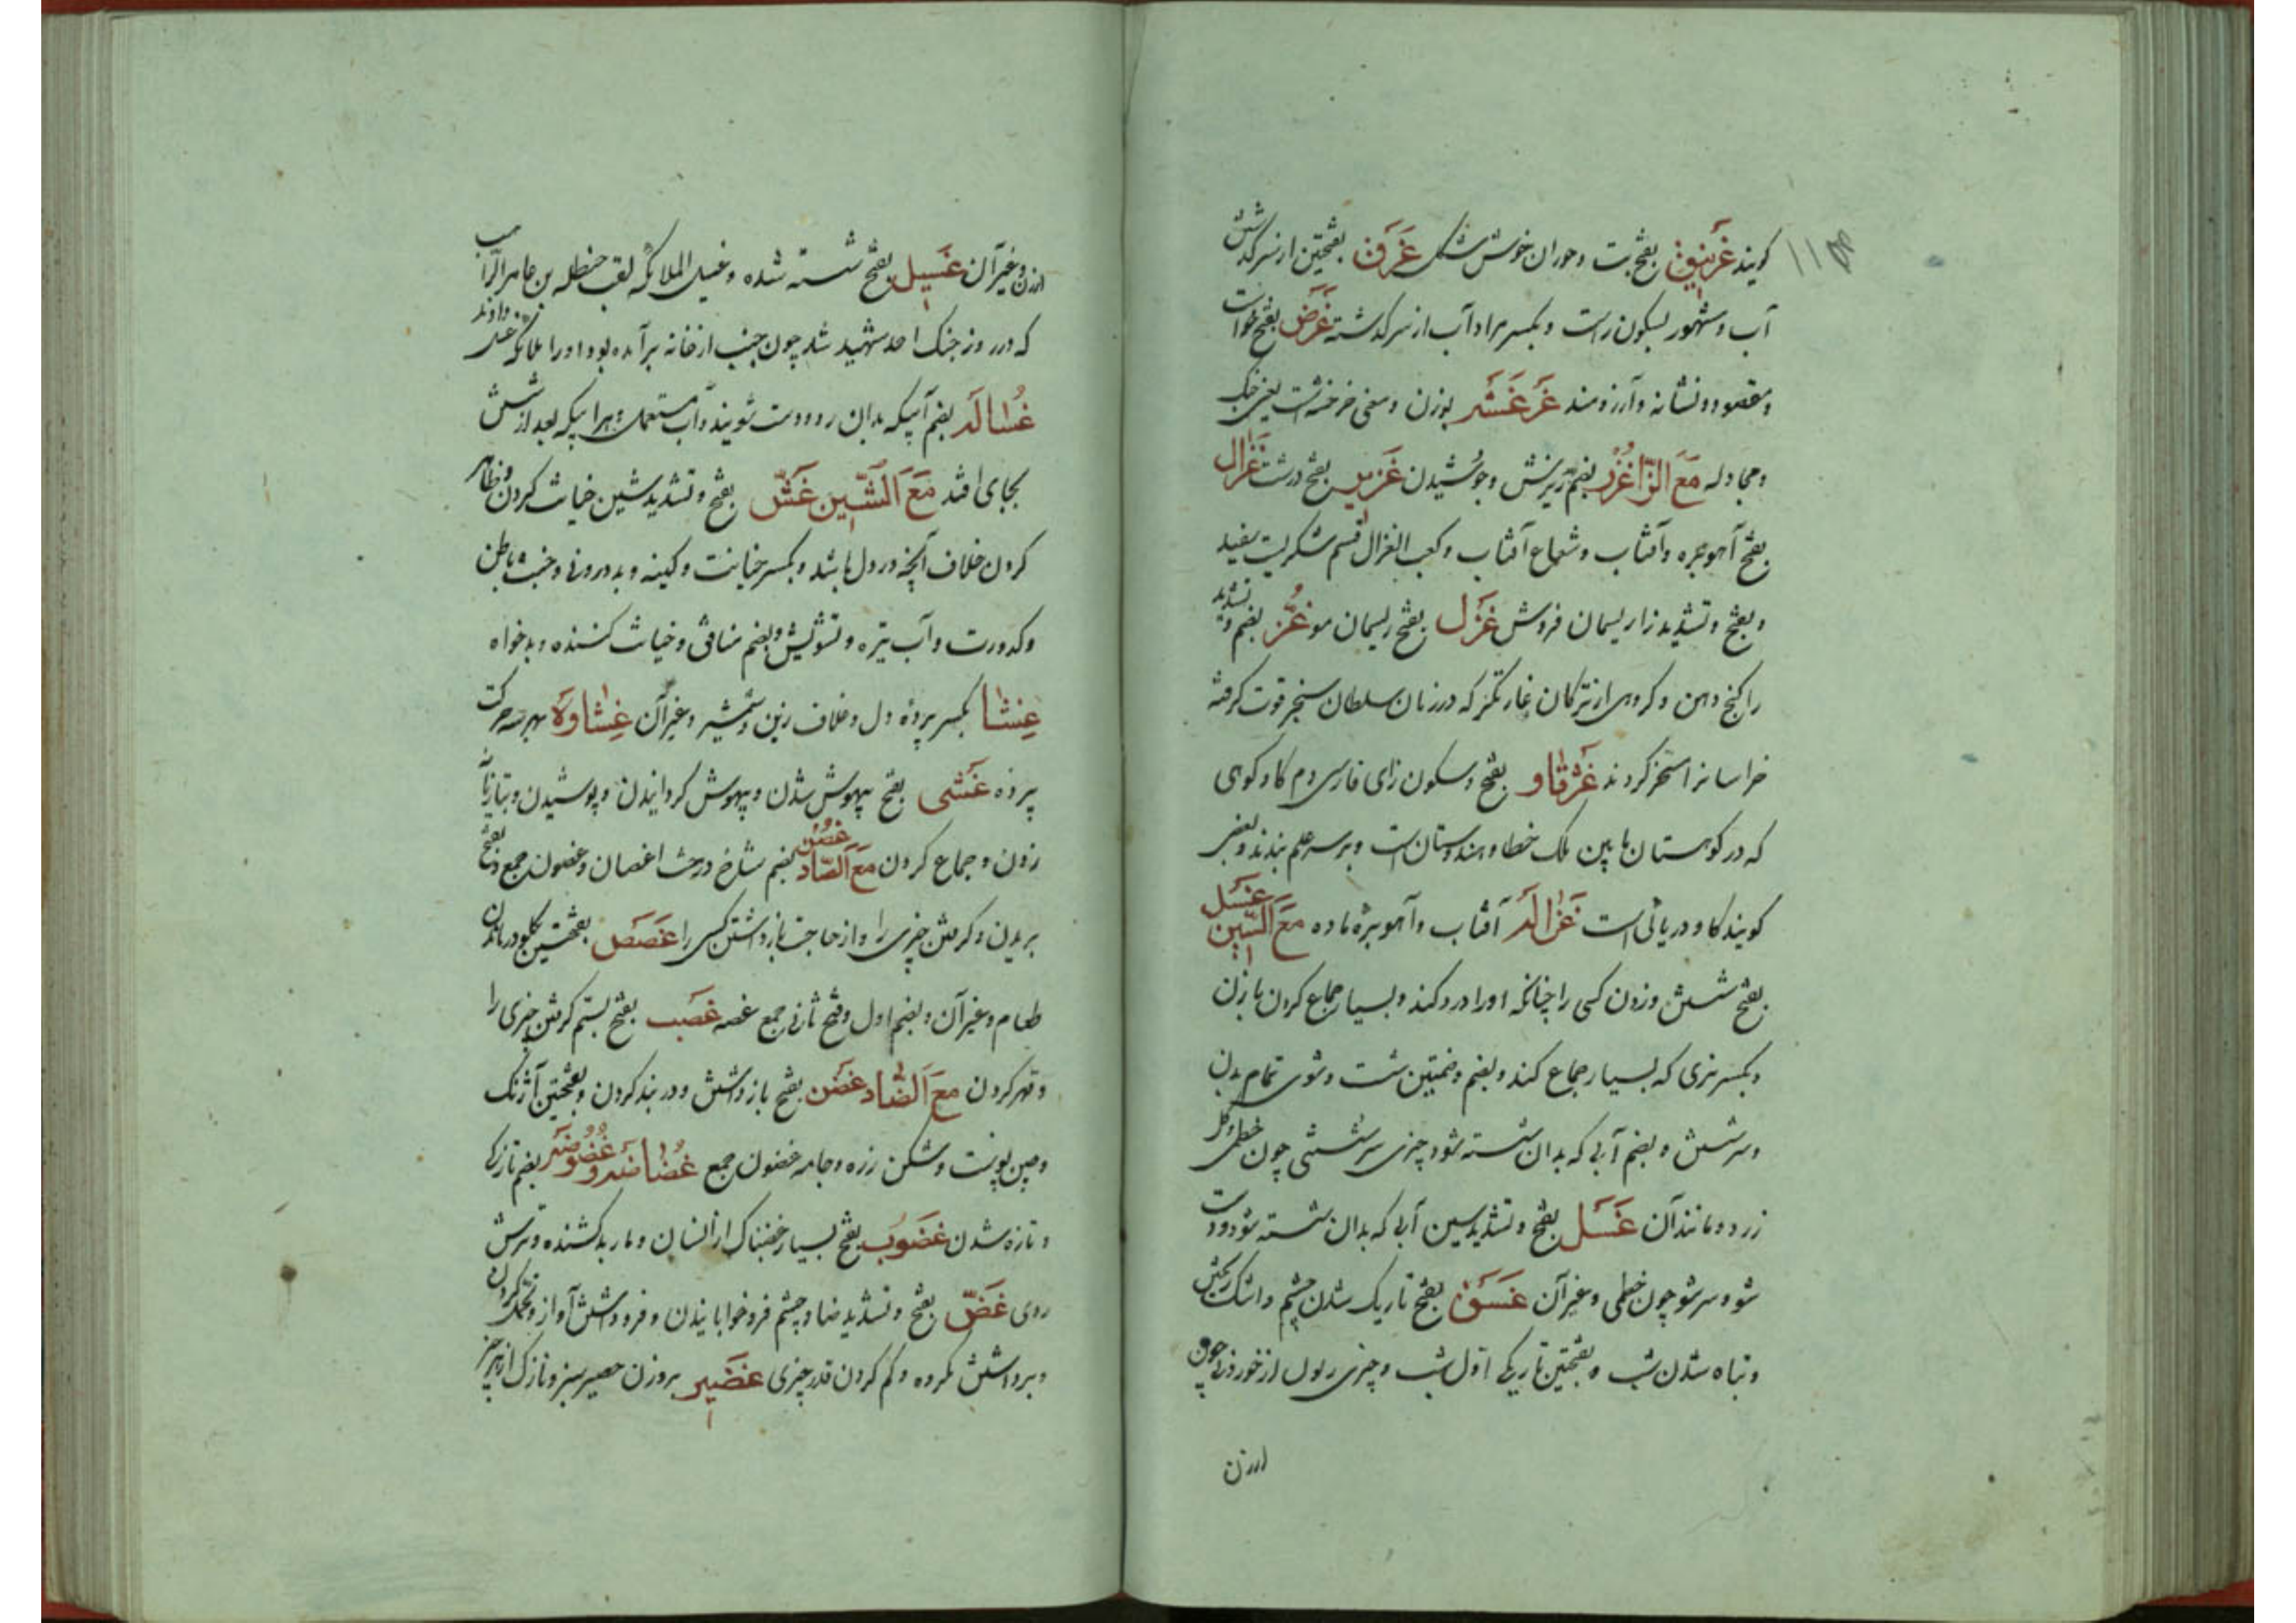 گویند غرنیق بفتح بت و جوان خوش شکل غرق بفتحتین از سر گذشتن
آب و مشهور بسکون راست و بکسر را و آب از سر گذشته غرض بفتح خواست
و مقصود و نشانه و آرزومند غرغشه بوزن و معنی خرخشه است یعنی جنگ
و مجادله مع الزا غزر بضم ریزش و جوشیدن غزیر بفتح درشت غزال
بفتح آهو بره و آفتاب و شعاع آفتاب و کعب الغزال قسم شکریست سفید
و بفتح و تشدید زا ریسمان فروش غزل بفتح ریسمان مو غز بضم و تشدید
را کنج دهن و کروهی از ترکان غارتگر که در زمان سلطان سنجر قوت گرفته
خراسانرا مسخر کردند غژقاو بفتح و سکون زای فارسی دم گاو کوهی
که در کوهستان مابین ملک خطا و هندوستان است و بر سر علم بندند و بعضی
گویند گاو دریائی است غزاله آفتاب و آهو بره ماده مع السین غسل
بفتح شستن و زدن کسی را چنانکه او را درد کند و بسیار جماع کردن با زن
و بکسر نری که بسیار جماع کند و بضم و ضمتین شست و شوی تمام بدن
و سر شستن و بضم آبی که بدان شسته شود چیزی سر شستنی چون خطمی و گل
زرد و مانند آن غسل بفتح و تشدید سین آبی که بدان شسته شود دست
شو و سرشو چون خطمی و غیر آن غسق بفتح تاریک شدن چشم و اشک ریختن
و تباه شدن شب و بفتحتین تاریکی اول شب و چیزی زبون از خوردنی چون
ارزن
ارزن و غیر آن غسیل بفتح شسته شده و غسیل الملائکه لقب حنظله بن عامر الراهب
که در روز جنک احد شهید شد چون جنب از خانه برآمده بود او را ملائکه غسل دادند
غساله بضم آبیکه بدان رو و دست شویند و آب مستعمل و هر آبیکه بعد از شستن
بجای افتد مع الشین غش بفتح و تشدید شین خیانت کردن و ظاهر
کردن خلاف آنچه در دل باشد و بکسر خیانت و کینه و بد درونی و خبث باطن
و کدورت و آب تیره و تشویش و بضم منافق و خیانت کننده و بدخواه
غشا بکسر پرده دل و غلاف زین و شمشیر و غیر آن غشاوة بهر سه حرکت
پرده غشی بفتح بیهوش شدن و بیهوش گردانیدن و پوشیدن و بتازیانه
زدن و جماع کردن مع الصاد غصن بضم شاخ درخت اغصان و غصون جمع و بفتح
بریدن و گرفتن چیزی را و از حاجت بازداشتن کسی را غصص بفتحتین بگلو درماندن
طعام و غیر آن و بضم اول و فتح ثانی جمع غصه غصب بفتح بستم گرفتن چیزی را
و قهر کردن مع الضاد غضن بفتح بازداشتن و در بند کردن و بفتحتین آژنک
و چین پوست و شکن زره و جامه غضون جمع غضاضه و غضوضه بضم تازگی
و تازه شدن غضوب بفتح بسیار غضبناک از انسان و مار بد کشنده و ترش
روی غض بفتح و تشدید ضاد چشم فرو خوابانیدن و فروداشتن آواز و تحمل کردن
و برداشتن مکروه و کم کردن قدر چیزی غضیر بروزن حصیر سبز و نازک از هر چیز